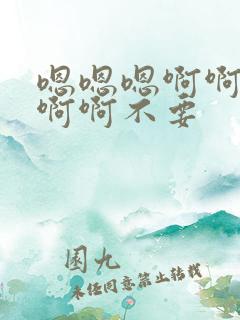 嗯嗯嗯啊啊
啊啊不要
圆九
未经同意禁止转载